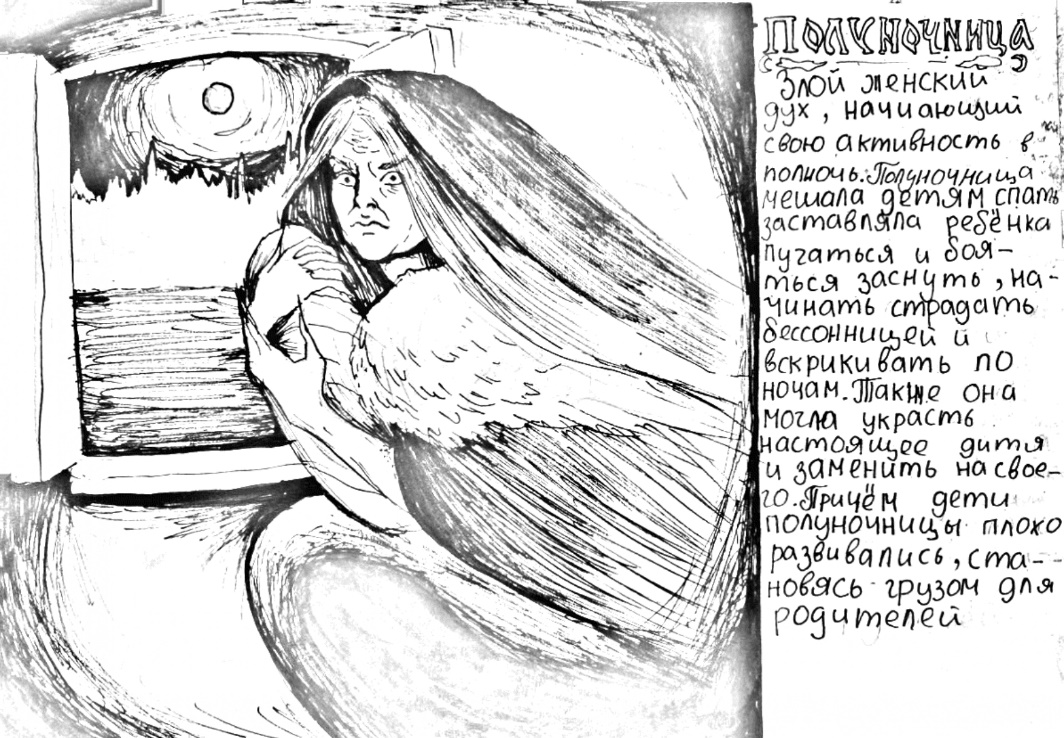 Полуночница
Злой женский
дух, начиающий
свою активность в
полночь. Полуночница
мешала детям спать
заставляла ребёнка
пугаться и боя-
ться заснуть, на-
чинать страдать
бессонницей и
вскрикивать по
ночам. Также она
могла украсть
настоящее дитя
и заменить на свое-
го. Причём дети
полуночницы плохо
развивались, ста-
новясь грузом для
родителей